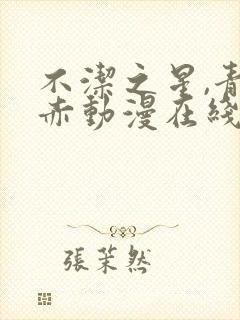 不潔之星,青
赤動漫在綫
張茉然